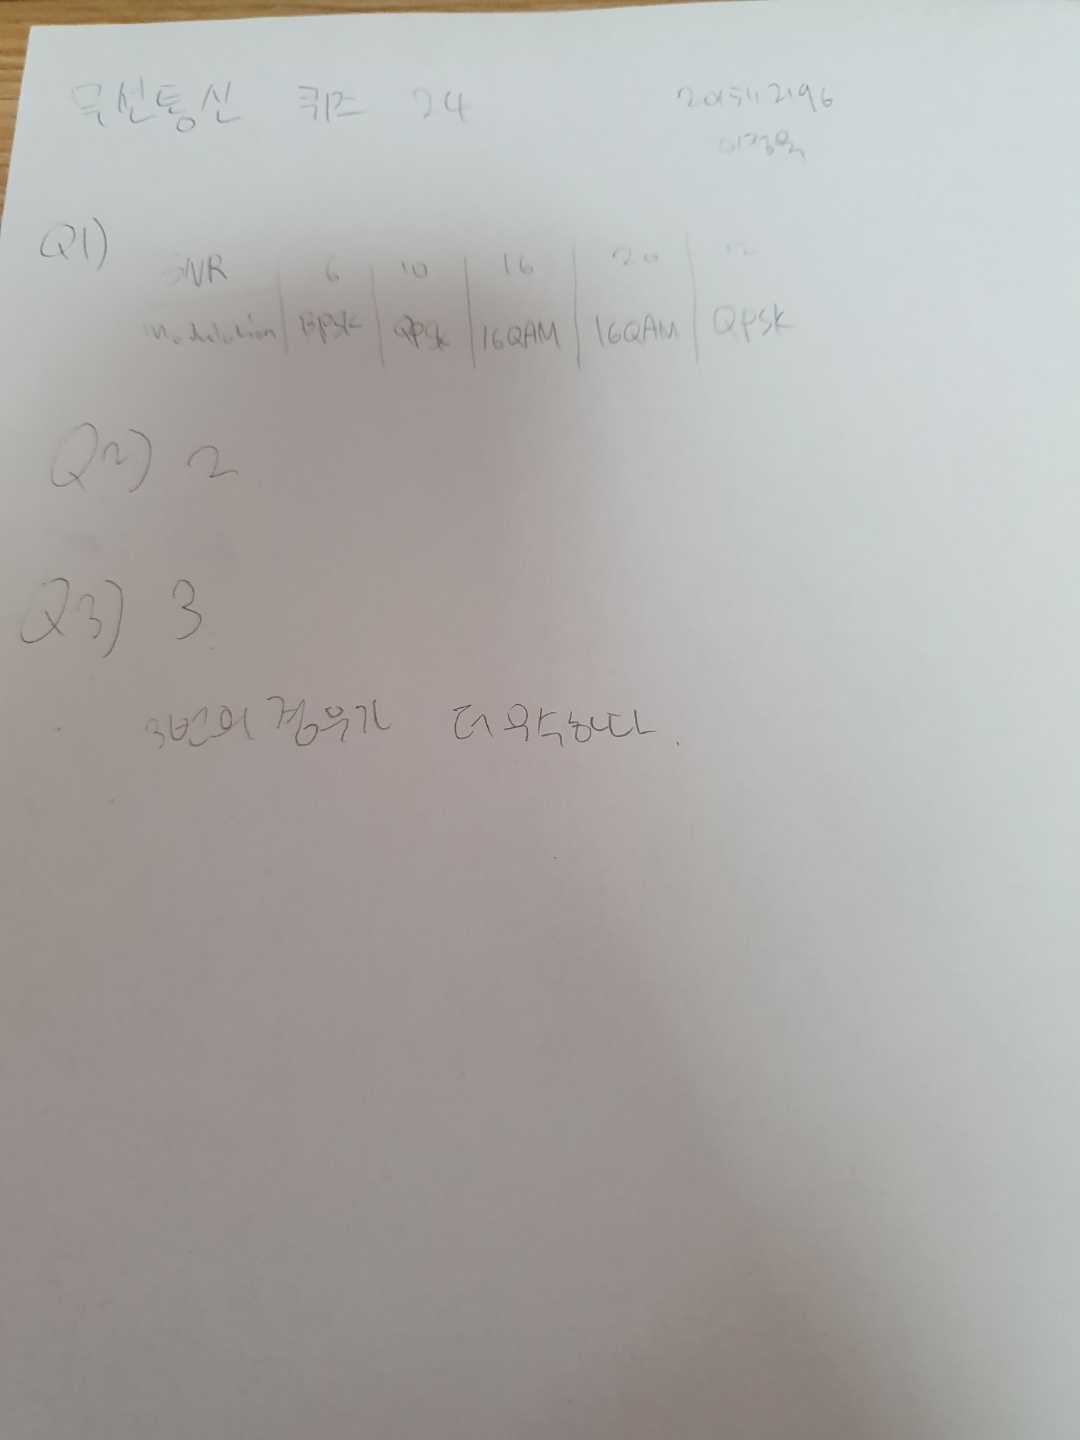 무선통신 퀴즈 24
Q1)
SNR 6 10 16 20 12
Modulation BPSK QPSK 16QAM 16QAM QPSK
Q2) 2
Q3) 3
3번의 경우가 더 약하다.